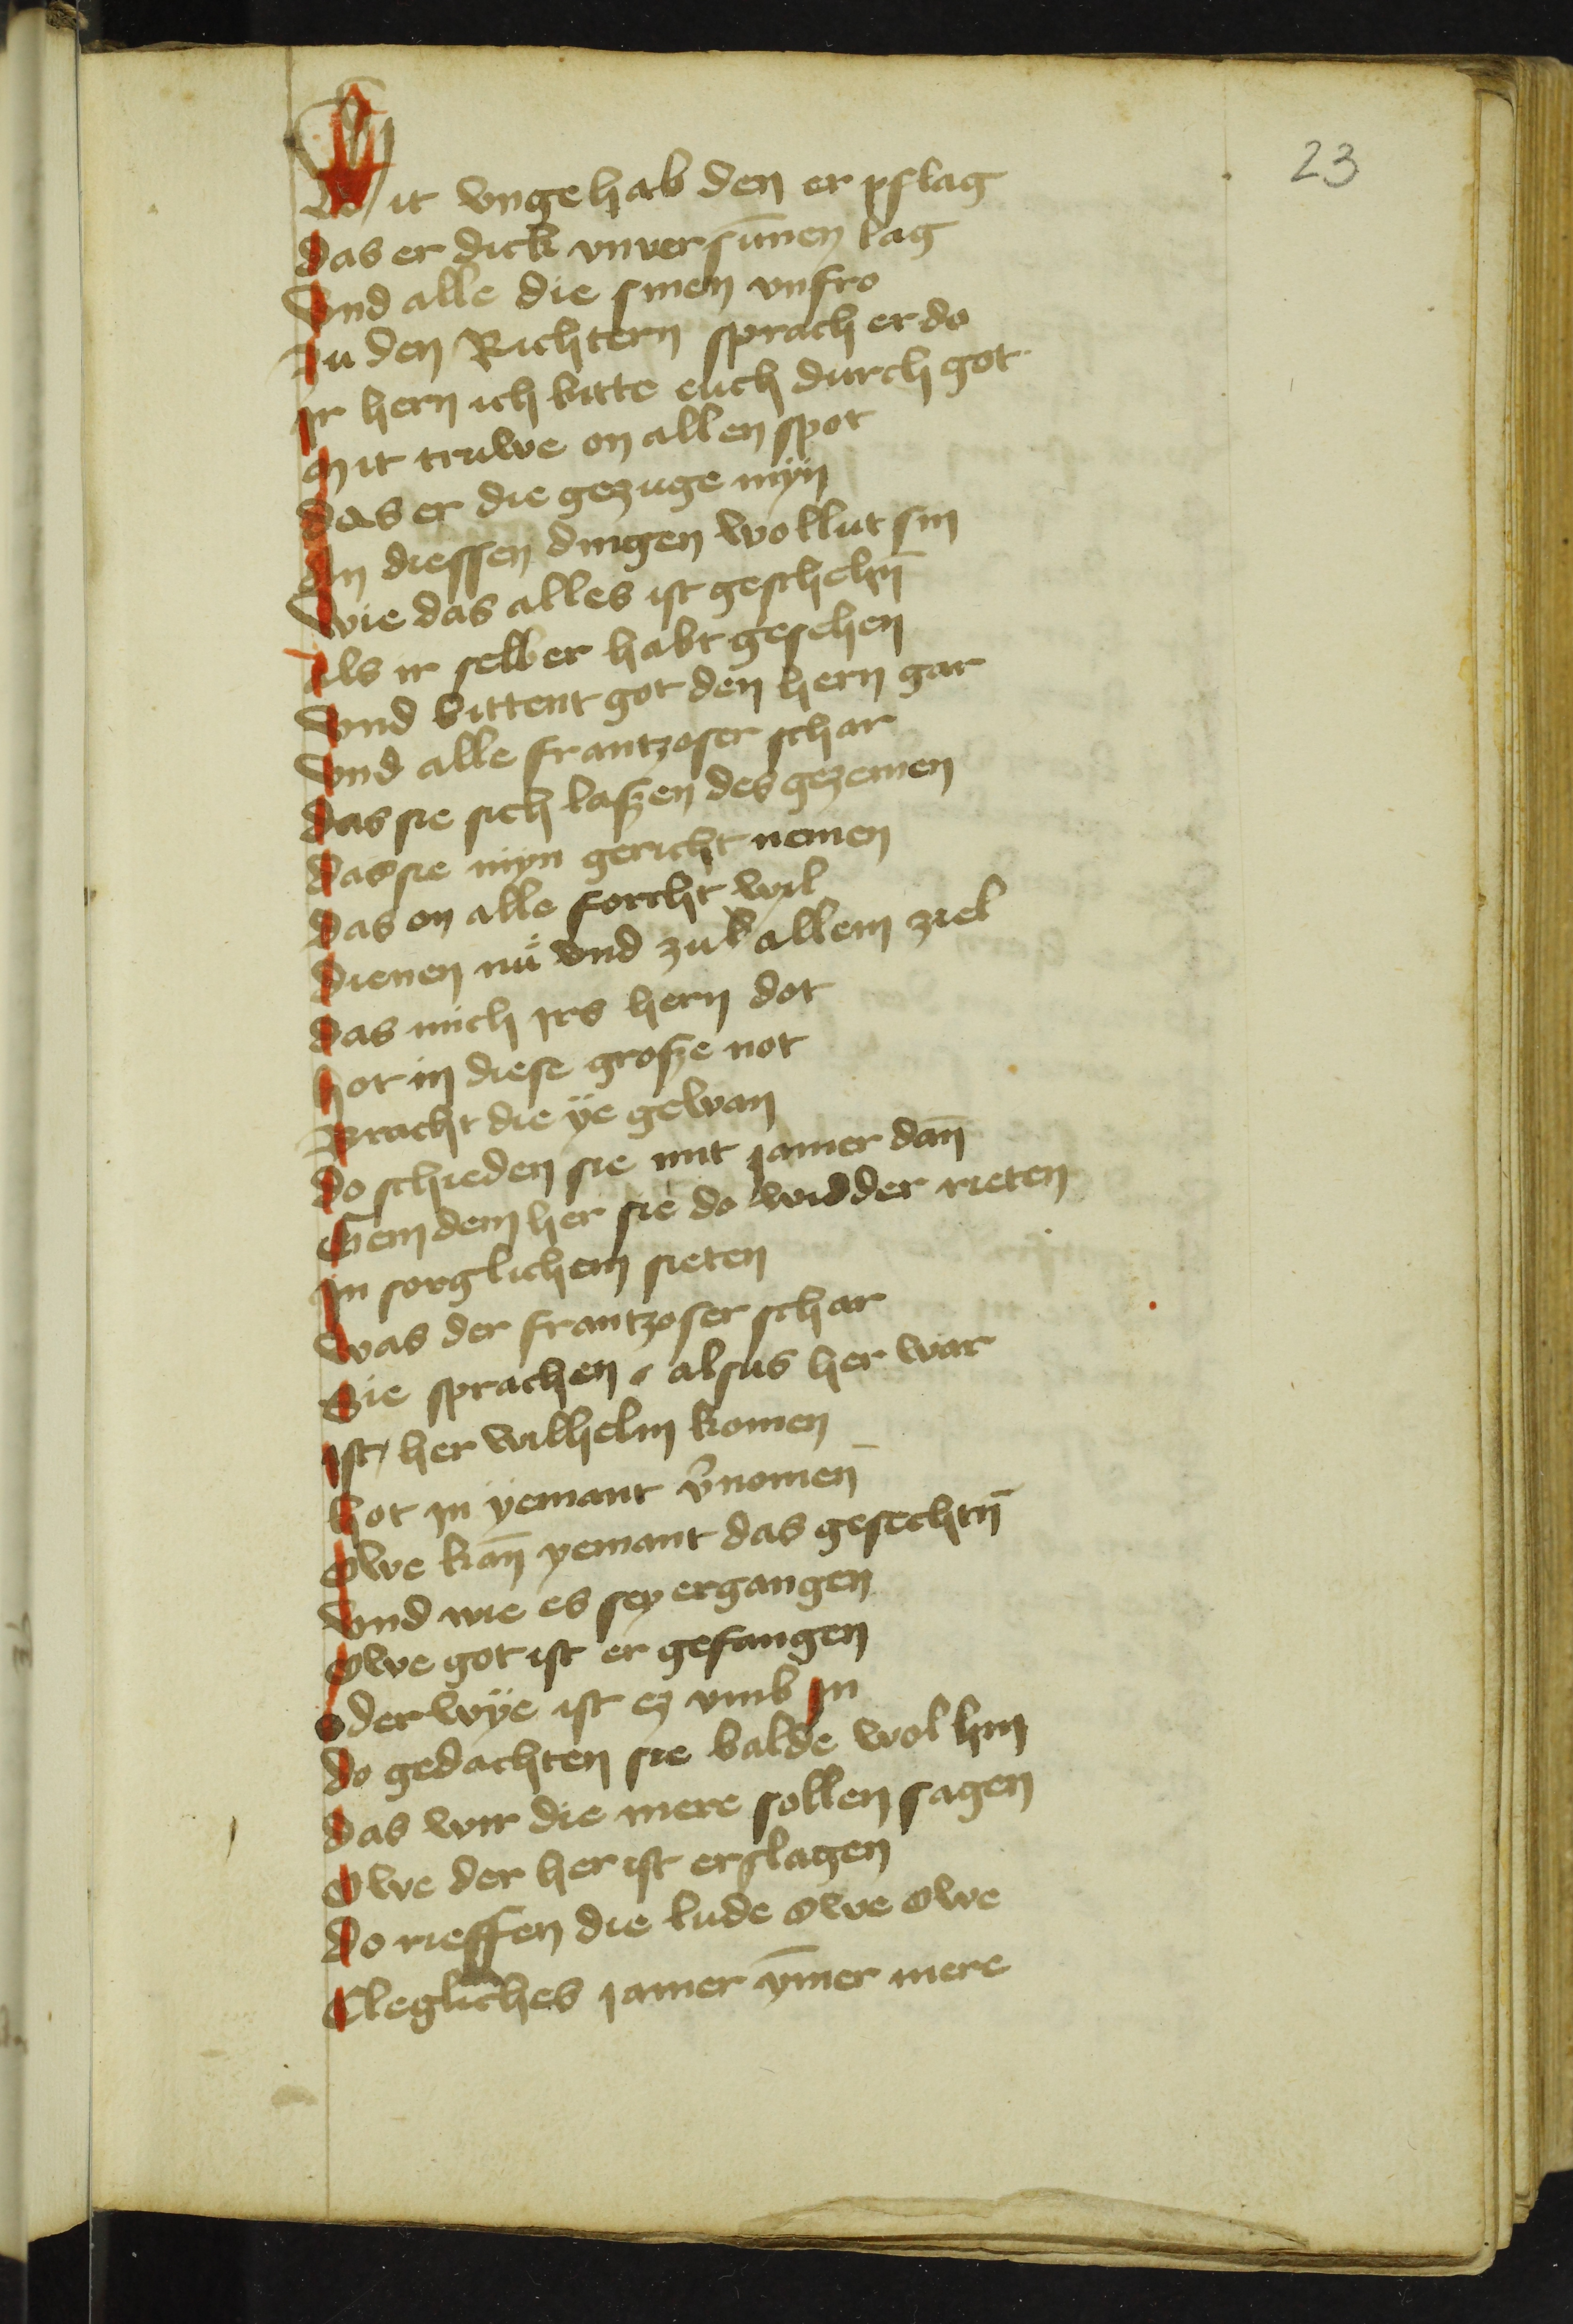 23
Mit vngehab den er pflag
das er dick vnuersūnen lag
Vnd alle die sinen vnfro
Zu den Richtern sprach er do
Ir hern ich bitte euch durch got
Mit truwe on allen spot
Das er die gezuge myn
An diessen dingen wollut sin
Wie das alles ist geschehn̄
Als ir selber habt gesehen
Vnd bittent got den hern gar
Vnd alle frantzoser schar
Das sie sich laßen des gezemen
Das sie myn gericht nemen
Das on alle forcht wil
Dienen nů vnd zu allem ziel
Das mich irs hern dot
Hot in diese große not
Bracht die ÿe gewan
Do schieden sie mit jamer dan̄
Gem dem her sie do widder rieten
In sorglichem sieten
Was der frantzoser schar
Sie sprachen alsus her war
Ist / her wilhelm komen
Hot in ÿemant v̄nomen̄
Owe kan̄ yemant das gesechtn̄
Vnd wie es sey ergangen
Owe got ist er gefangen
Oder wÿe ist ez vmb in
Do gedachten sie balde wol hin
Das wir die mere sollen sagen
Owe der her ist erslagen
Do rieffen die lude owe owe
Clegliches jamer ȳmer mere